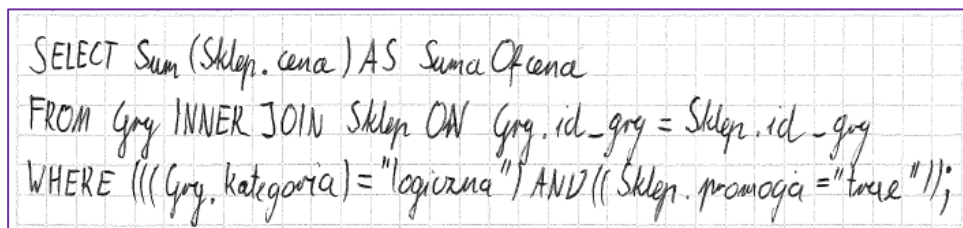 SELECT Sum (Sklep.cena) AS Suma Ofcena
FROM Gry INNER JOIN Sklep ON Gry.id_gry = Sklep.id_gry
WHERE (((Gry.kategoria)="logiczna") AND((Sklep.promocja="true"));